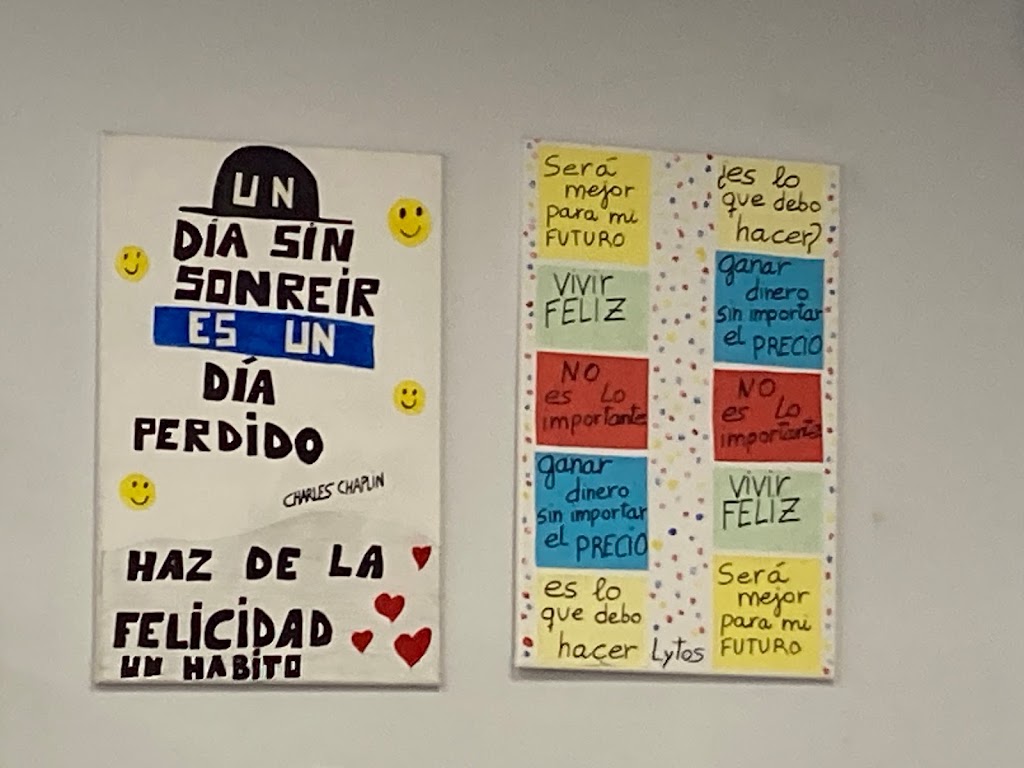 UN
DÍA SIN
SONREÍR
ES UN
DÍA
PERDIDO
CHARLES CHAPLIN
HAZ DE LA
FELICIDAD
UN HABITO
Será
mejor
para mi
FUTURO
VIVIR
FELIZ
NO
es Lo
importante
ganar
dinero
sin importar
el PRECIO
es lo
que debo
hacer
¿es lo
que debo
hacer?
ganar
dinero
sin importar
el PRECIO
NO
es Lo
importante
VIVIR
FELIZ
Será
mejor
para mi
FUTURO
Lytos